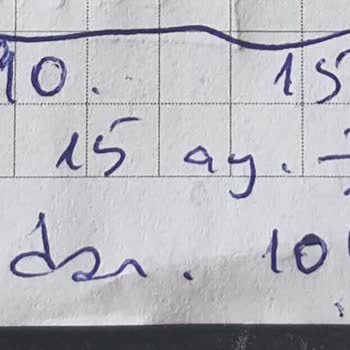 90. 15
15 ay.
dan. 10